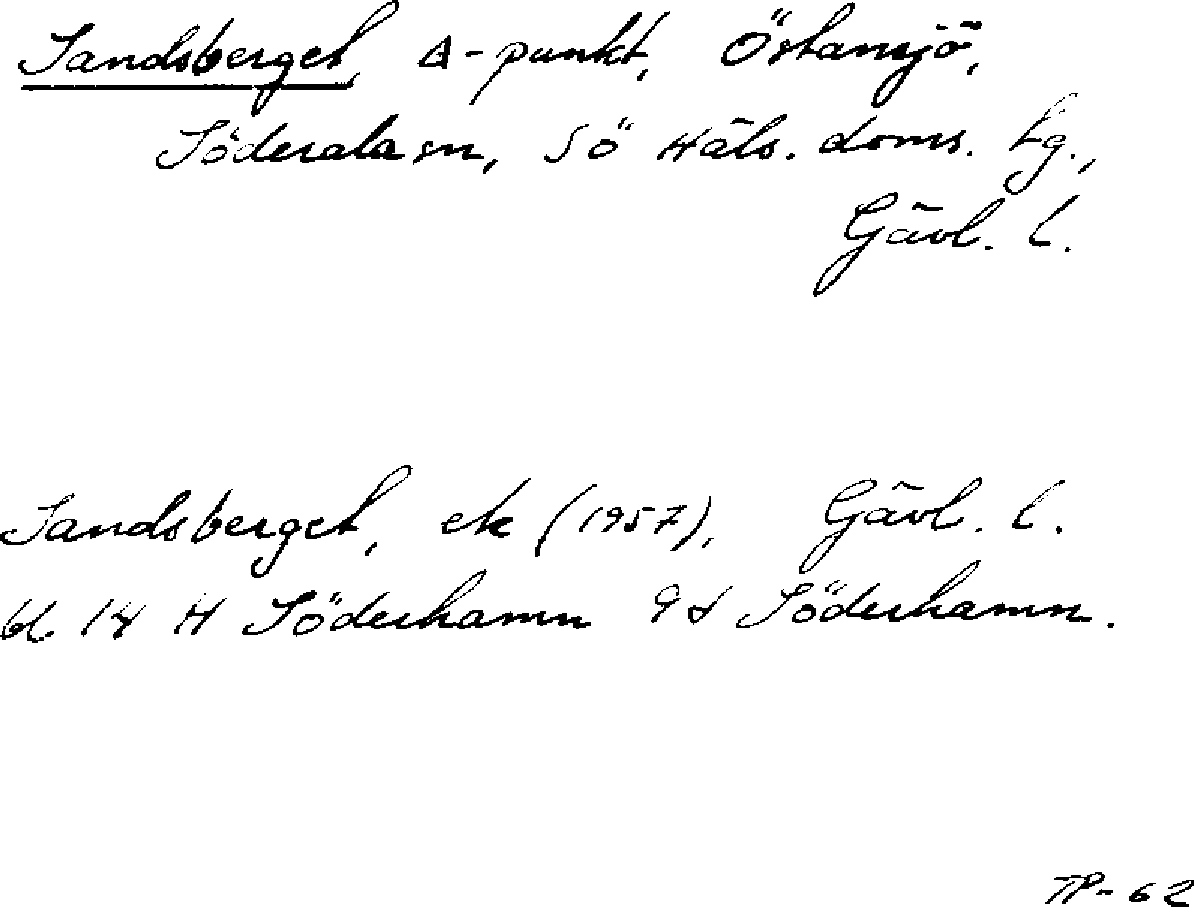 Sandsberget, Δ-punkt, Östansjö,
Söderala sn, Sö Häls. doms. tg.,
Gävl. l.
Sandsberget, ek (1957), Gävl. l.
bl 14 H Söderhamn 9 d Söderhamn.
TP-62